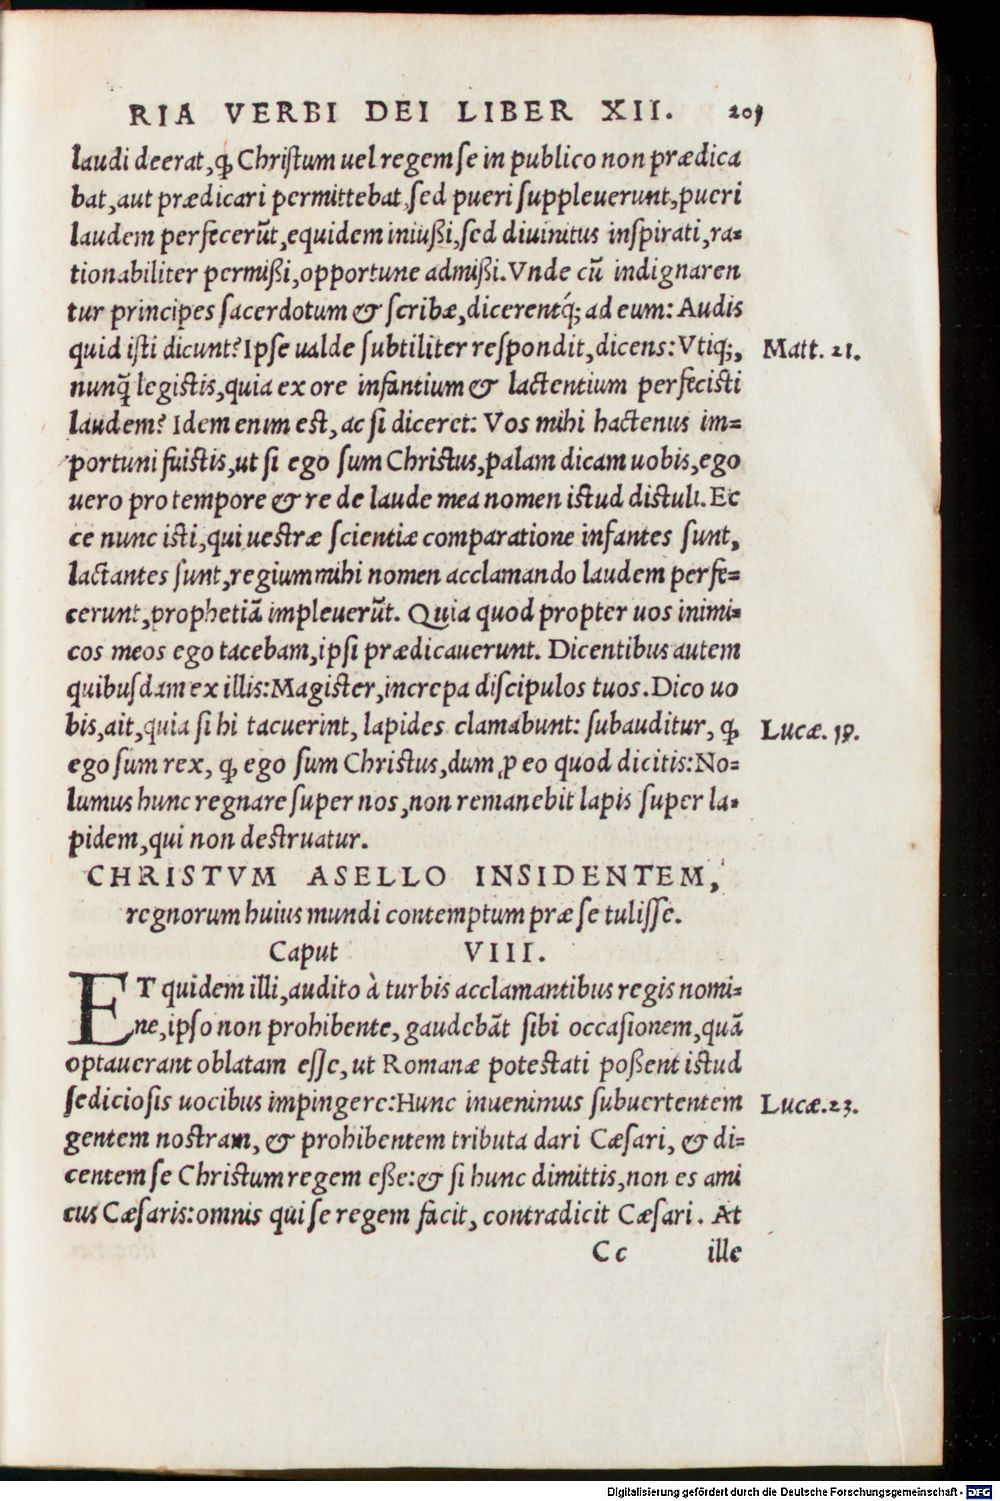 RIA VERBI DEI LIBER XII. 205
laudi deerat, ꝙ Chriſtum uel regem ſe in publico non prædica
bat, aut prædicari permittebat, ſed pueri ſuppleuerunt, pueri
laudem perfecerũt, equidem iniußi, ſed diuinitus inſpirati, ra-
tionabiliter permißi, opportune admißi. Vnde cũ indignaren
tur principes ſacerdotum & ſcribæ, dicerentq́; ad eum: Audis
quid iſti dicunt? Ipſe ualde ſubtiliter reſpondit, dicens: Vtiq;, Matt. 21.
nunq̃ legiſtis, quia ex ore infantium & lactentium perfeciſti
laudem? Idem enim eſt, ac ſi diceret: Vos mihi hactenus im-
portuni fuiſtis, ut ſi ego ſum Chriſtus, palam dicam uobis, ego
uero pro tempore & re de laude mea nomen iſtud diſtuli. Ec
ce nunc iſti, qui ueſtræ ſcientiæ comparatione infantes ſunt,
lactantes ſunt, regium mihi nomen acclamando laudem perfe-
cerunt, prophetiã impleuerũt. Quia quod propter uos inimi-
cos meos ego tacebam, ipſi prædicauerunt. Dicentibus autem
quibuſdam ex illis: Magiſter, increpa diſcipulos tuos. Dico uo
bis, ait, quia ſi hi tacuerint, lapides clamabunt: ſubauditur, ꝙ Lucæ. 19.
ego ſum rex, ꝙ ego ſum Chriſtus, dum ꝓ eo quod dicitis: No-
lumus hunc regnare ſuper nos, non remanebit lapis ſuper la-
pidem, qui non deſtruatur.
CHRISTVM ASELLO INSIDENTEM,
regnorum huius mundi contemptum præ ſe tuliſſe.
Caput VIII.
ET quidem illi, audito à turbis acclamantibus regis nomi-
ne, ipſo non prohibente, gaudebãt ſibi occaſionem, quã
optauerant oblatam eſſe, ut Romanæ poteſtati poßent iſtud
ſedicioſis uocibus impingere: Hunc inuenimus ſubuertentem Lucæ. 23.
gentem noſtram, & prohibentem tributa dari Cæſari, & di-
centem ſe Chriſtum regem eße: & ſi hunc dimittis, non es ami
cus Cæſaris: omnis qui ſe regem facit, contradicit Cæſari. At
Cc ille
Digitalisierung gefördert durch die Deutsche Forschungsgemeinschaft - DFG